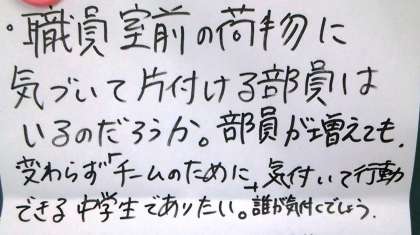 ・職員室前の荷物に
気づいて片付ける部員は
いるのだろうか。部員が増えても、
変わらず「チームのために」気付いて行動
できる中学生でありたい。誰が気付くでしょう。